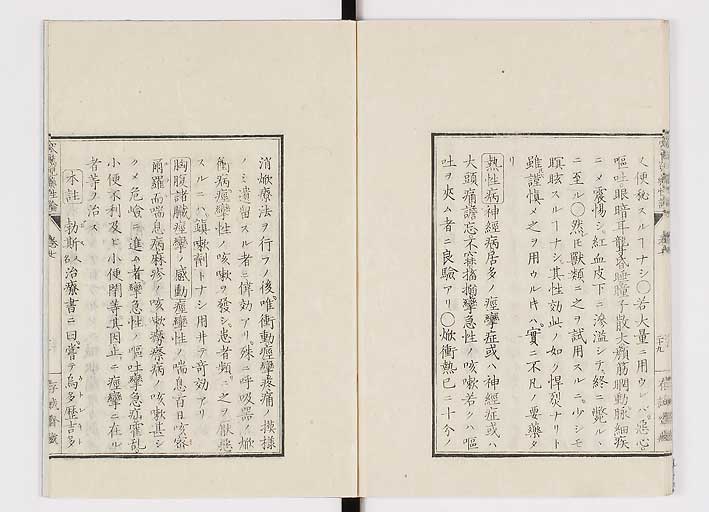 又便秘スルヿナシ〇若大量ニ用ウレバ惡心
嘔吐眼暗耳聾昏睡瞳子散大顳筋䐃動脉細疾
ニメ震惕シ紅血皮下ニ滲溢シテ終ニ斃ル
ニ至ル〇然𪜈獸類ニ之ヲ試用スルニ少シモ
瞑眩スルヿナシ其性効此ノ如ク悍烈ナリト
雖謹慎メ之ヲ用ウルキハ實ニ不凡ノ要藥タ
リ
熱性病神經病居多ノ痙攣症或ハ神經症或ハ
大頭痛譫忘不寐搐搦攣急性ノ咳嗽若クハ嘔
吐ヲ夾ム者ニ良驗アリ〇焮衝熱已ニ十分ノ
消焮療法ヲ行フノ後唯衝動痙攣疼痛ノ摸樣
ノミ遺留スル者ニ偉効アリ殊ニ呼吸器ノ焮
衝病痙攣性ノ咳嗽ヲ發シ患者頻ニ之ヲ厭惡
スルニハ鎮嗽劑トナシ用井テ奇効アリ
胸腹諸臓痙攣ノ感動痙攣性ノ喘息百日咳窒
爾羅而喘息病麻疹ノ咳嗽癆瘵病ノ咳嗽甚シ
クメ危險ニ進ム者攣急性ノ嘔吐攣急症霍亂
小便不利及ヒ小便閉等其因止ニ痙攣ニ在ル
者等ヲ治ス
本註 勃斯 治療書ニ曰嘗テ烏多歷吉多